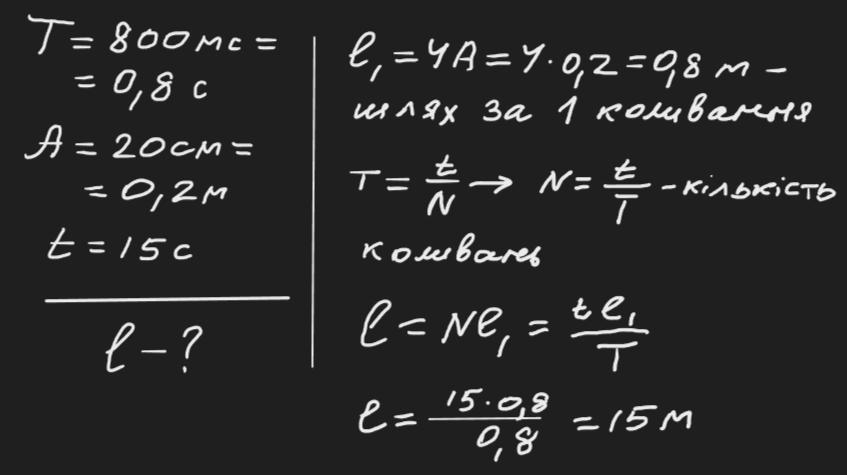 T = 800 мс =
= 0,8 с
A = 20 см =
= 0,2 м
t = 15 с
l – ?
l₁ = 4A = 4 · 0,2 = 0,8 м –
шлях за 1 коливання
T = t/N → N = t/T – кількість
коливань
l = Nl₁ = tl₁/T
l = 15 · 0,8/0,8 = 15 м